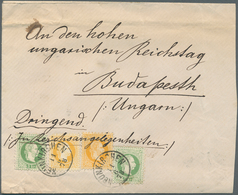 An den hohen
ungarischen Reichstag
in
Budapesth
(Ungarn)
Dringend.
(In Reichsangelegenheiten)
NEUNKIRCHEN